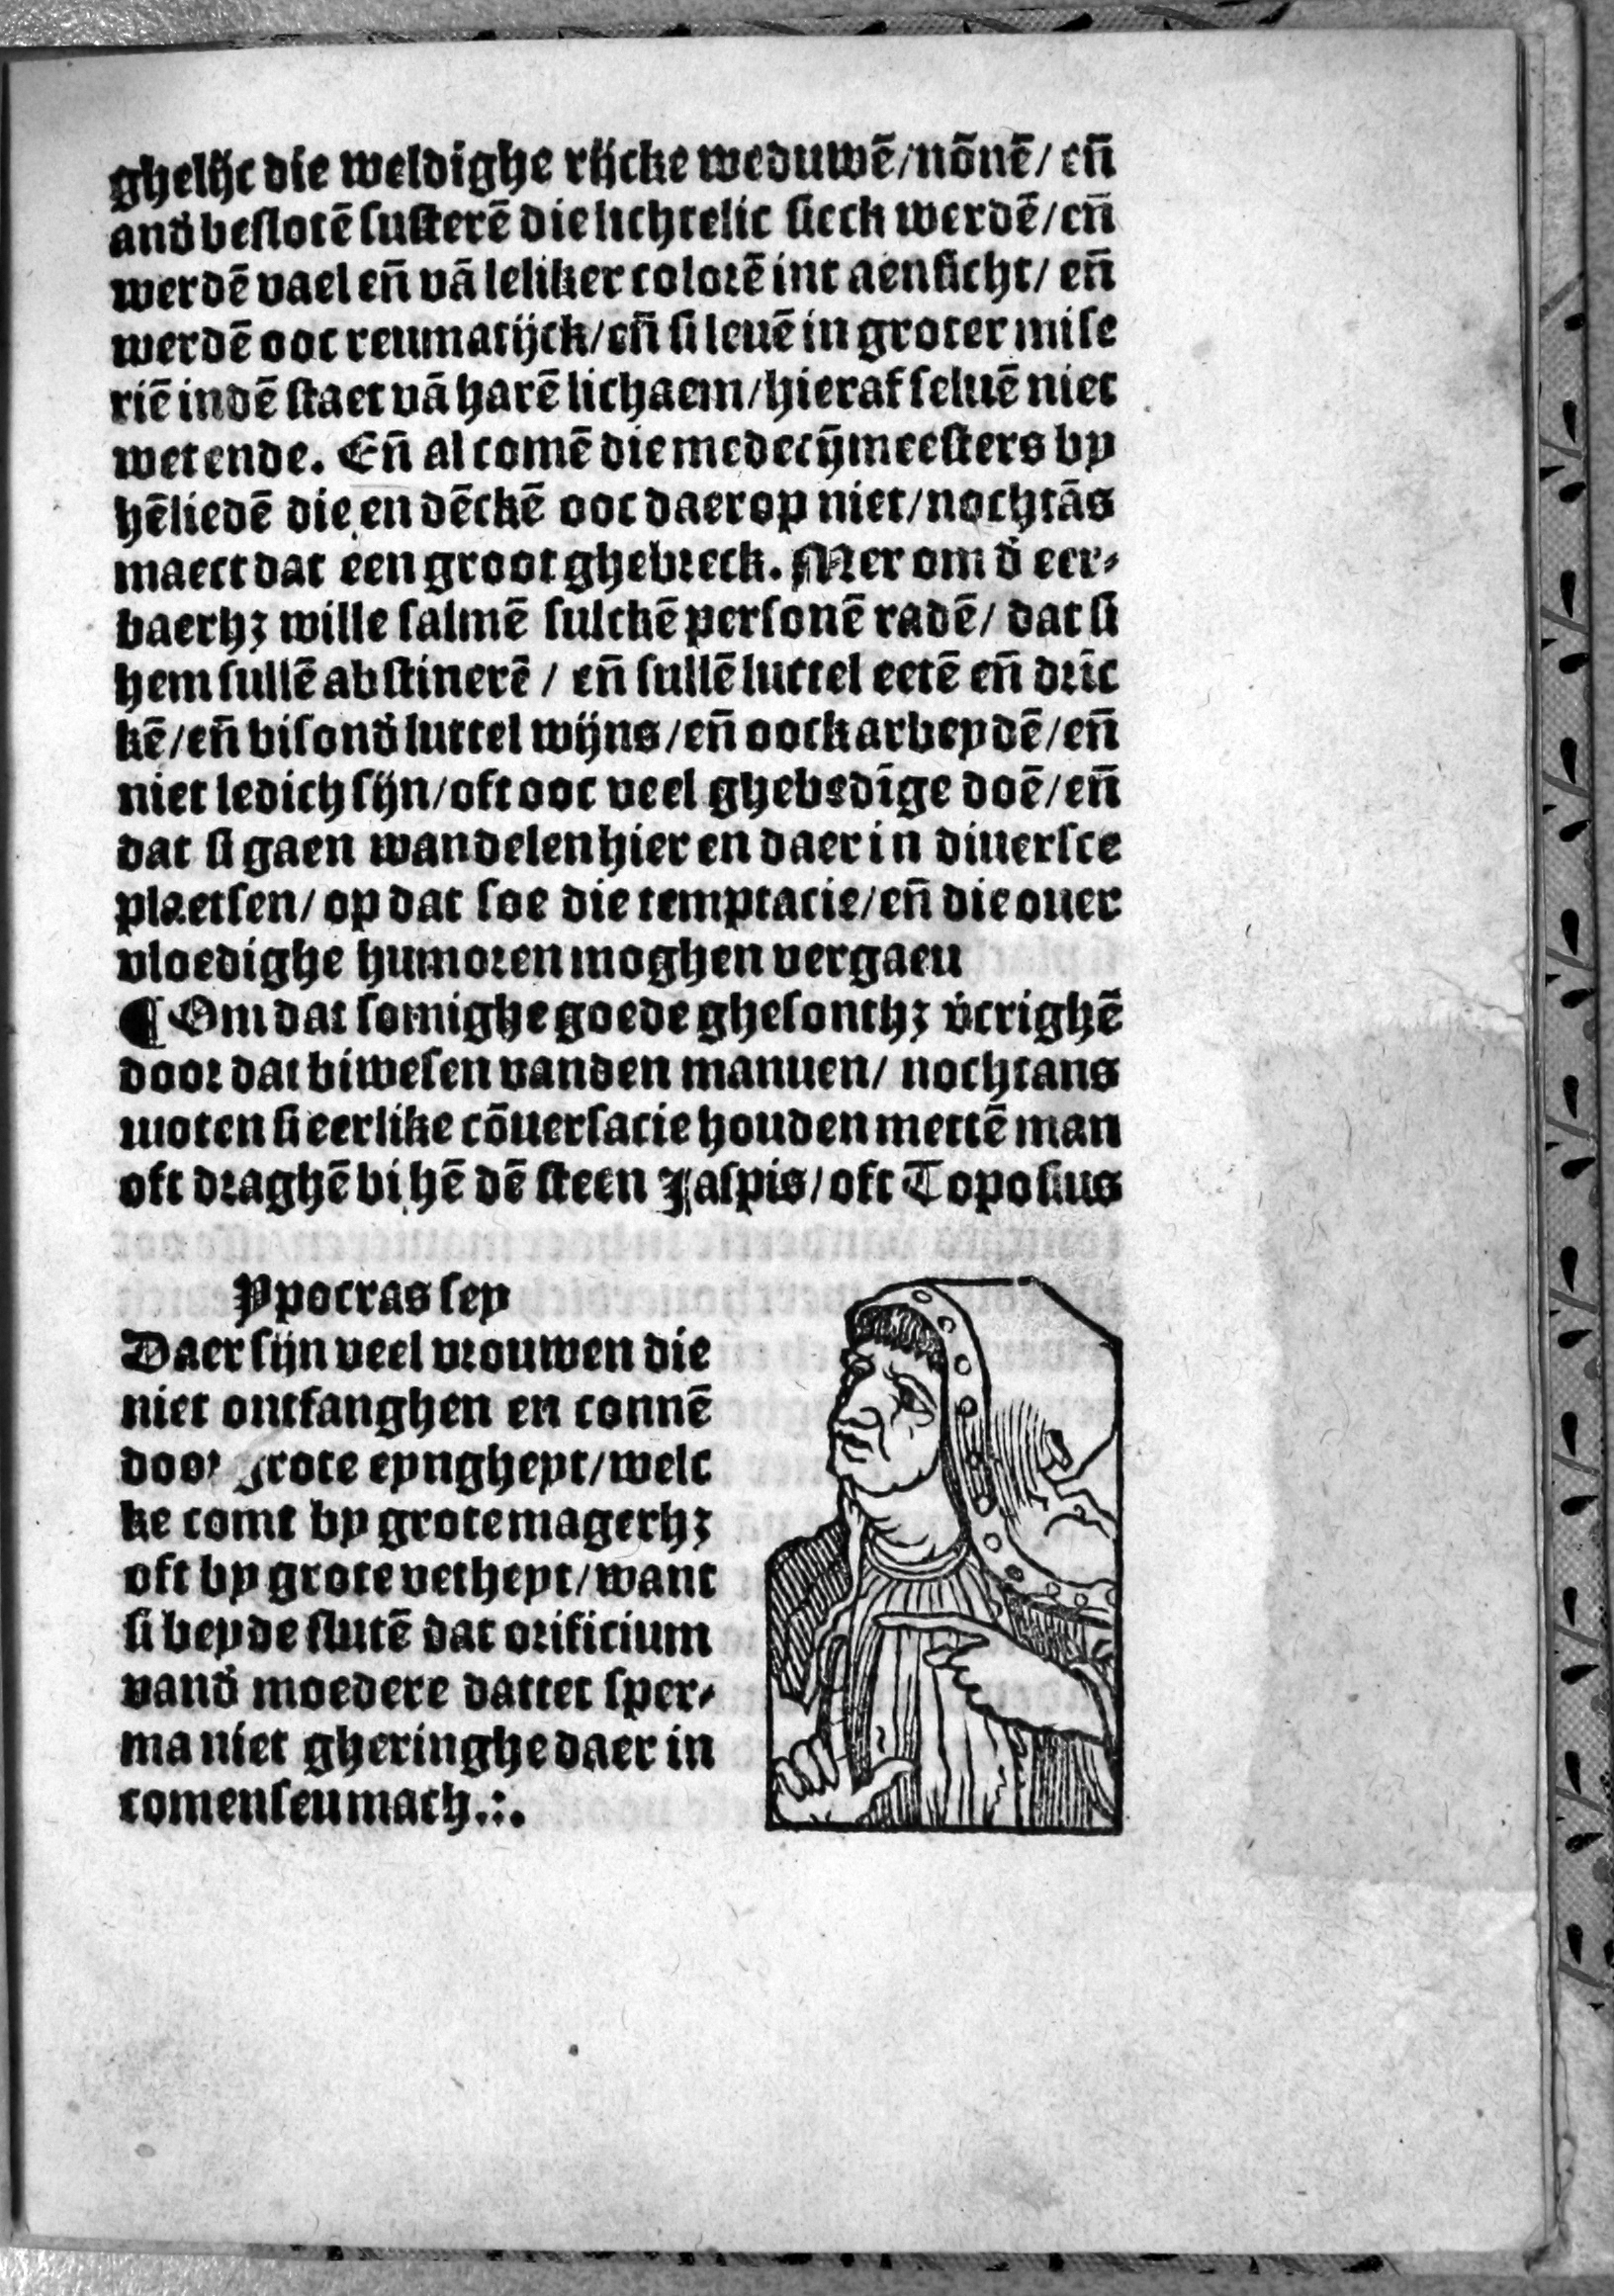 ghelijc die weldighe rijcke weduwē/nōnē/ eñ
and̉ beslotē susterē die lichtelic sieck werdē/eñ
werdē vael eñ vā leliker colorē int aensicht/ eñ
werdē ooc reumatijck/eñ si leuē in groter mise
riē indē staet vā harē lichaem/hieraf seluē niet
wetende. Eñ al comē die medecijmeesters by
hēliedē die en dēckē ooc daer op niet/nochtās
maect dat een groot ghebreck. Mer om d̉ eer⸗
baerhʒ wille salmē sulckē personē radē/ dat si
hem sullē abstinerē / eñ sullē luttel eetē eñ drīc
kē/eñ bisond̉ luttel wijns/eñ oock arbeydē/eñ
niet ledich sijn/oft ooc veel ghebedīge doē/eñ
dat si gaen wandelen hier en daer in diuersce
plaetsen/ op dat soe die temptacie/eñ die ouer
vloedighe humoren moghen vergaeu
¶ Om dat somighe goede ghesonthʒ v̉crighē
door dat biwesen vanden manuen/ nochtans
moten si eerlike cōuersacie houden mettē man
oft draghē bi hē dē steen Jaspis/oft Toposius
Ypocras sey
Daer sijn veel vrouwen die
niet ontfanghen en connē
door grote eyngheyt/welc
ke comt by grote magerhʒ
oft by grote vetheyt/want
si beyde slutē dat orificium
vand̉ moedere dattet sper⸗
ma niet gheringhe daer in
comen seu mach.:.